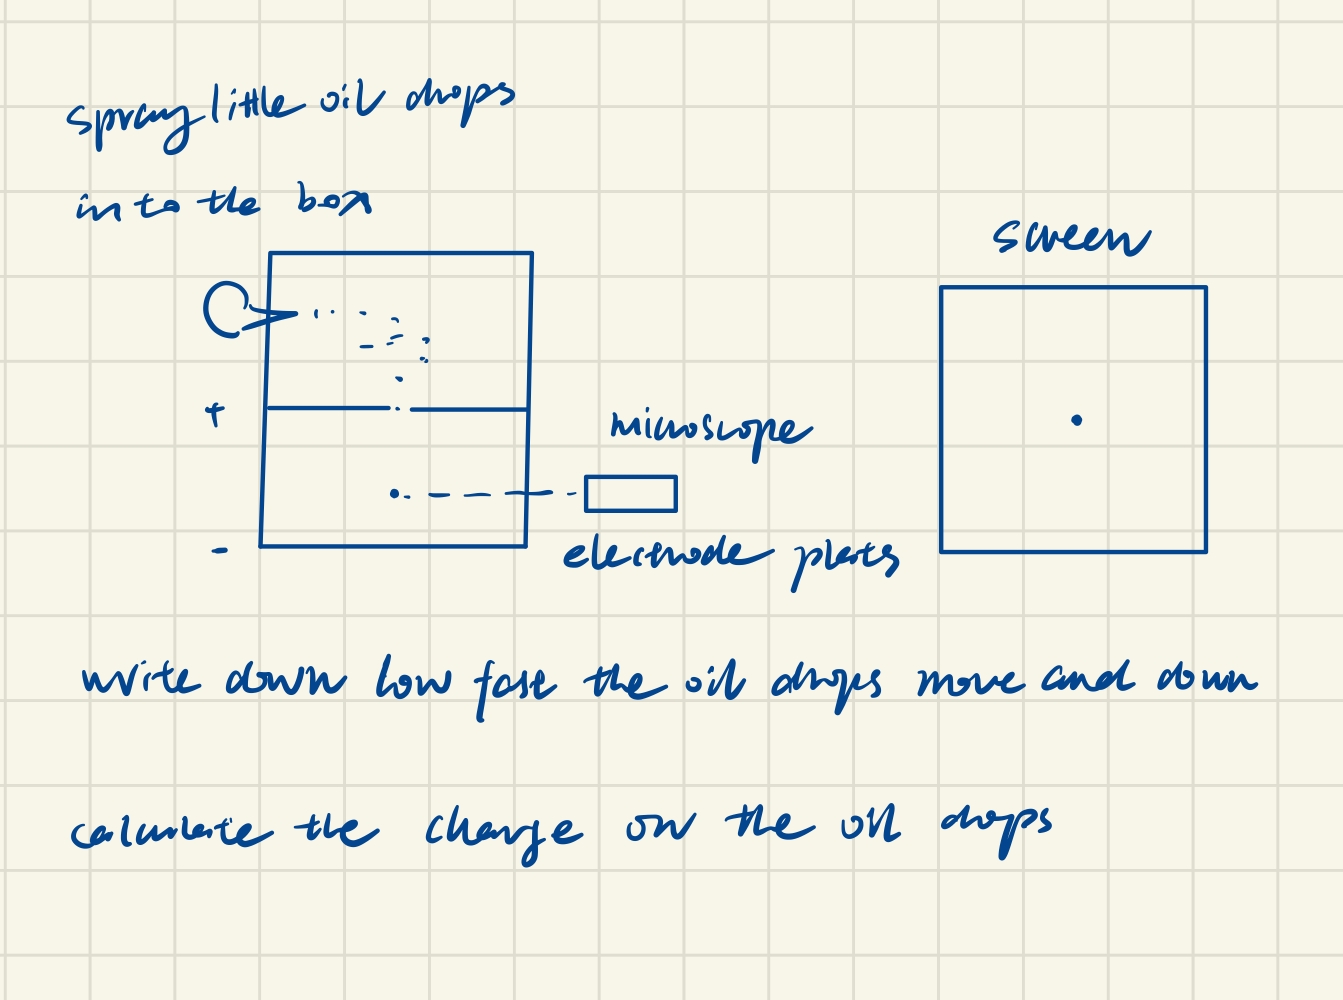 spray little oil drops
into the box
screen
+
microscope
-
electrode plats
write down how fast the oil drops move and down
calculate the charge on the oil drops